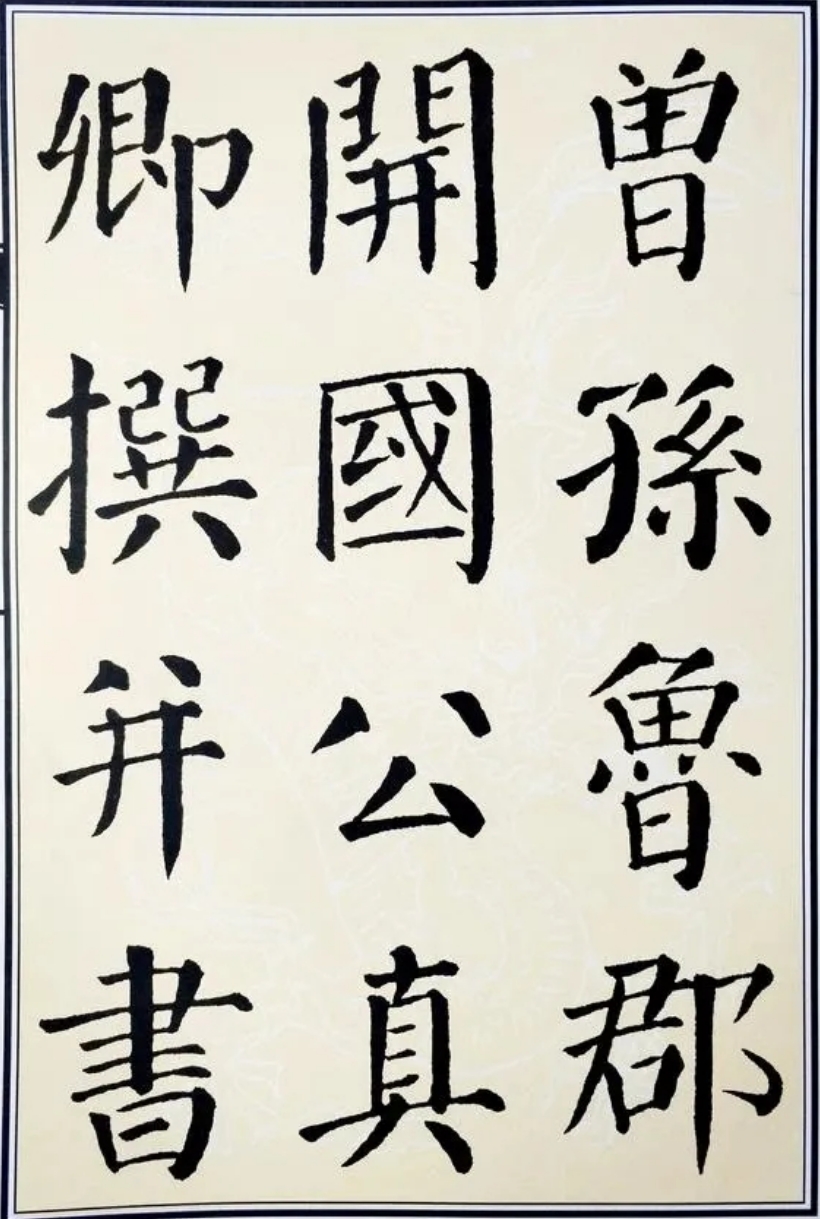 曾孫魯郡
開國公真
卿撰并書